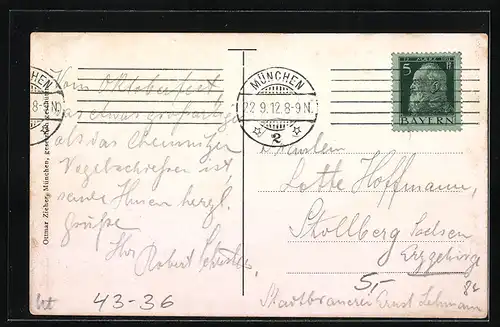 MÜNCHEN
22.9.12.8-9N.
2
8-9N.
5
BAYERN
Vom Oktoberfest,
als das Chemnitzer
Vogelschiessen ist,
sende Ihnen herzl.
Grüße
Ihr Robert Schuster
Fräulein
Lotte Hoffmann,
Stollberg Sachsen
Erzgebirge
Stadtbrauerei Ernst Lehmann
Ottmar Zieher, München,
43-36
5,-